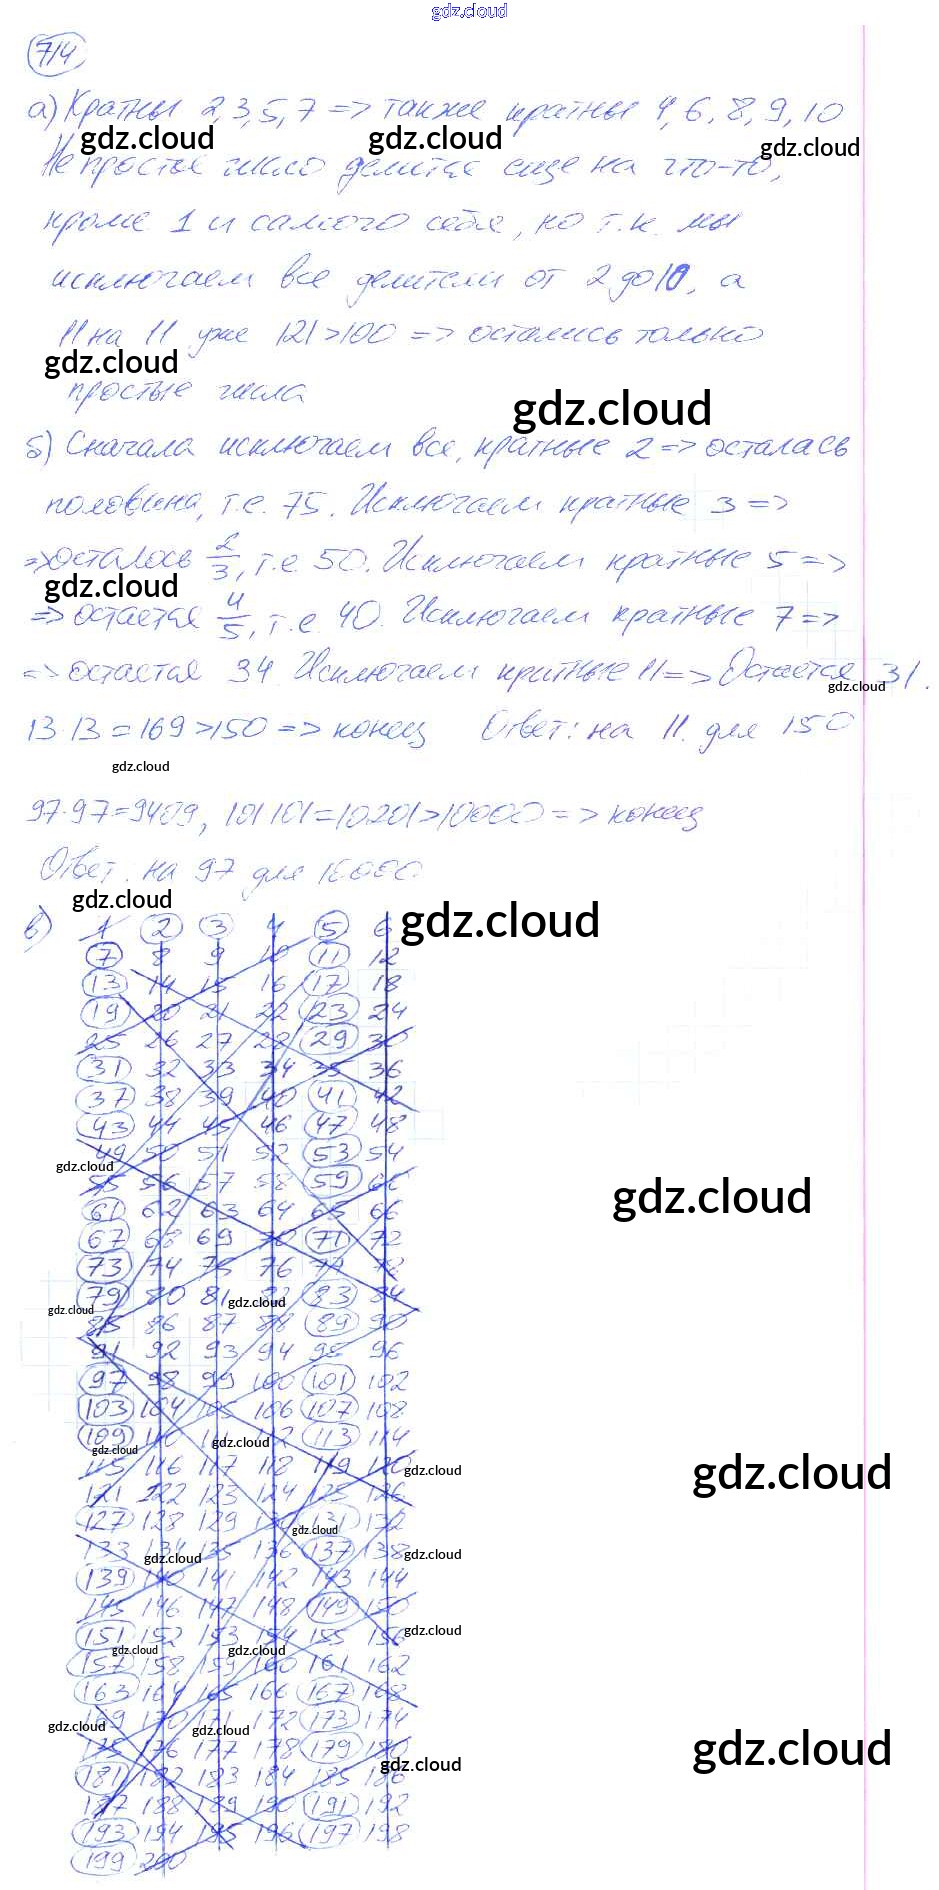 gdz.cloud
714
а) Кратны 2, 3, 5, 7 => также кратны 4, 6, 8, 9, 10
gdz.cloud gdz.cloud gdz.cloud
Не простое число делится еще на что-то,
кроме 1 и самого себя, но т.к. мы
исключаем все делители от 2 до 10, а
11 на 11 уже 121>100 => остались только
gdz.cloud
простые числа
gdz.cloud
б) Сначала исключаем все, кратные 2 => осталась
половина, т.е. 75. Исключаем кратные 3 =>
=> осталось 2/3, т.е. 50. Исключаем кратные 5 =>
gdz.cloud
=> остается 4/5, т.е. 40. Исключаем кратные 7 =>
=> остается 34. Исключаем кратные 11 => Остается 31.
gdz.cloud
13·13=169>150 => конец Ответ: на 11 для 150
gdz.cloud
97·97=9409, 101·101=10201>10000 => конец
Ответ: на 97 для 10000
gdz.cloud gdz.cloud
в) 1 2 3 4 5 6
7 8 9 10 11 12
13 14 15 16 17 18
19 20 21 22 23 24
25 26 27 28 29 30
31 32 33 34 35 36
37 38 39 40 41 42
43 44 45 46 47 48
49 50 51 52 53 54
gdz.cloud
55 56 57 58 59 60
gdz.cloud
61 62 63 64 65 66
67 68 69 70 71 72
73 74 75 76 77 78
79 80 81 82 83 84
gdz.cloud gdz.cloud
85 86 87 88 89 90
91 92 93 94 95 96
97 98 99 100 101 102
103 104 105 106 107 108
109 110 111 112 113 114
gdz.cloud gdz.cloud
115 116 117 118 119 120
gdz.cloud gdz.cloud
121 122 123 124 125 126
127 128 129 130 131 132
gdz.cloud
133 134 135 136 137 138
gdz.cloud gdz.cloud
139 140 141 142 143 144
145 146 147 148 149 150
151 152 153 154 155 156
gdz.cloud gdz.cloud gdz.cloud
157 158 159 160 161 162
163 164 165 166 167 168
169 170 171 172 173 174
gdz.cloud gdz.cloud
175 176 177 178 179 180
gdz.cloud gdz.cloud
181 182 183 184 185 186
187 188 189 190 191 192
193 194 195 196 197 198
199 200